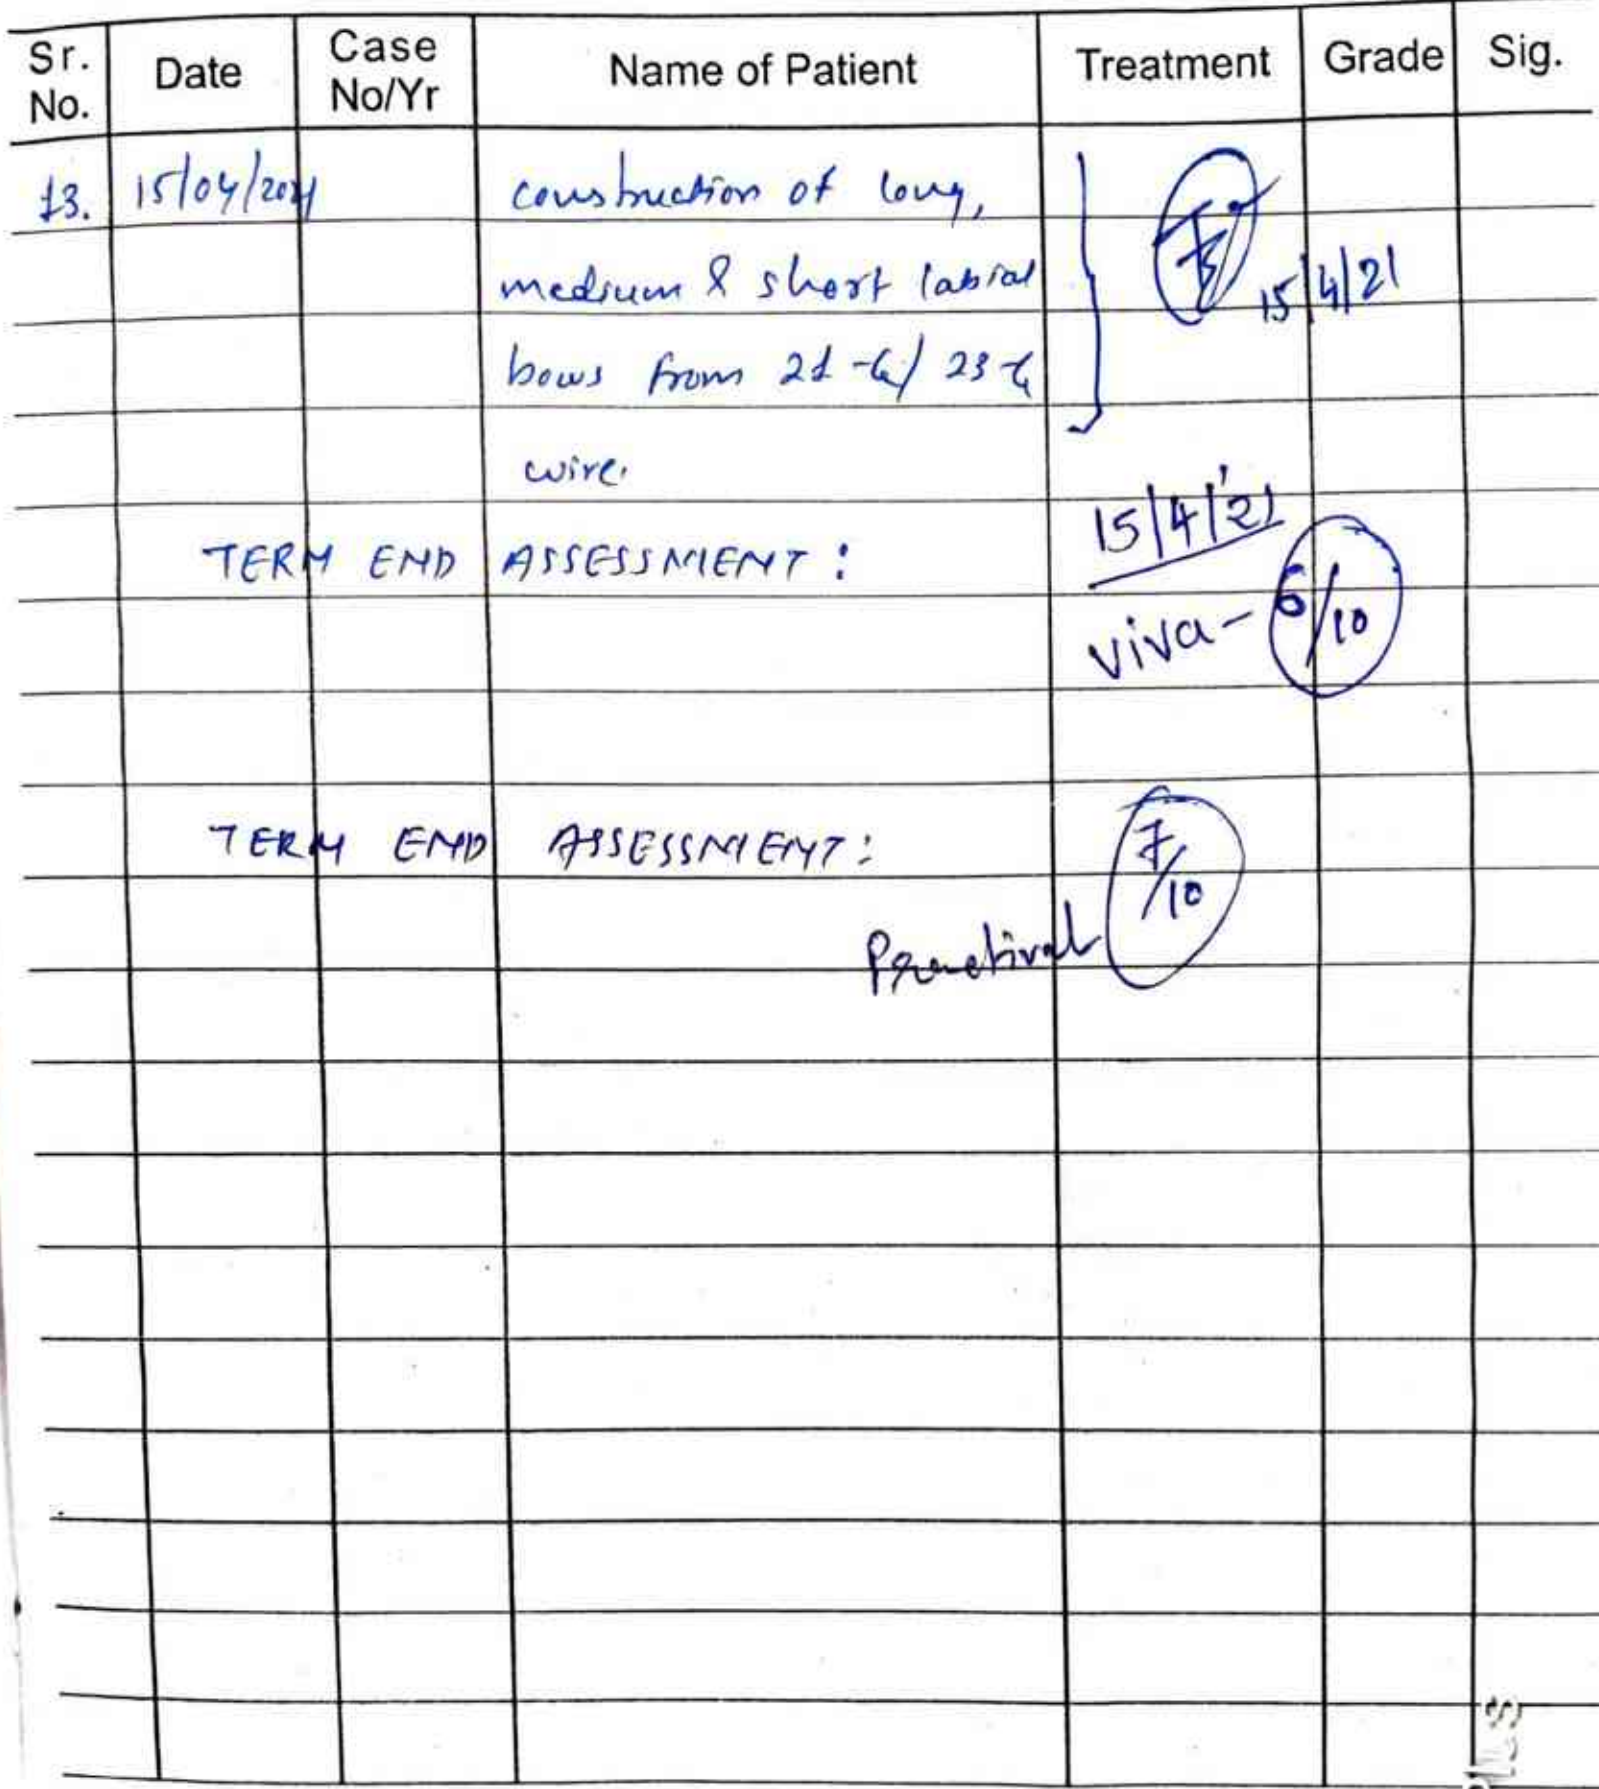 Sr. No. Date Case No/Yr Name of Patient Treatment Grade Sig.
13. 15/04/2021 construction of long,
medium & short labial
15/4/21
bows from 21-G/ 23-G
wire.
15/4/'21
TERM END ASSESSMENT :
viva - 6/10
TERM END ASSESSMENT :
7/10
Practical